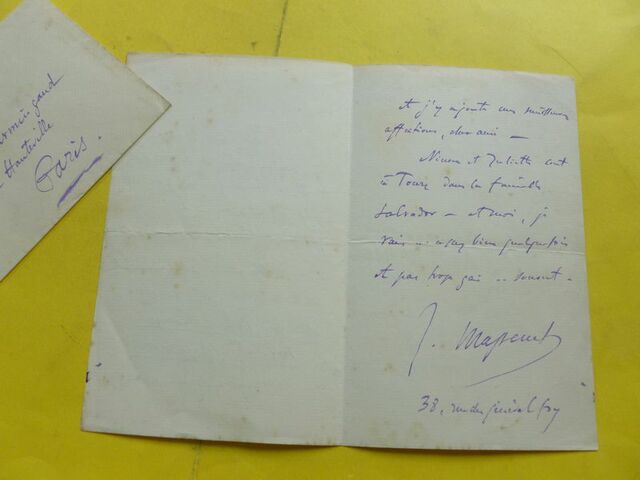 Hauteville
Paris.
et j'y ajoute mes meilleures
affections, cher ami —
Ninon et Juliette sont
à Tours dans la famille
Salvador — et moi, je
vais assez bien quelquefois
et pas trop gai .. souvent -
J. Massenet
38, rue du général Foy